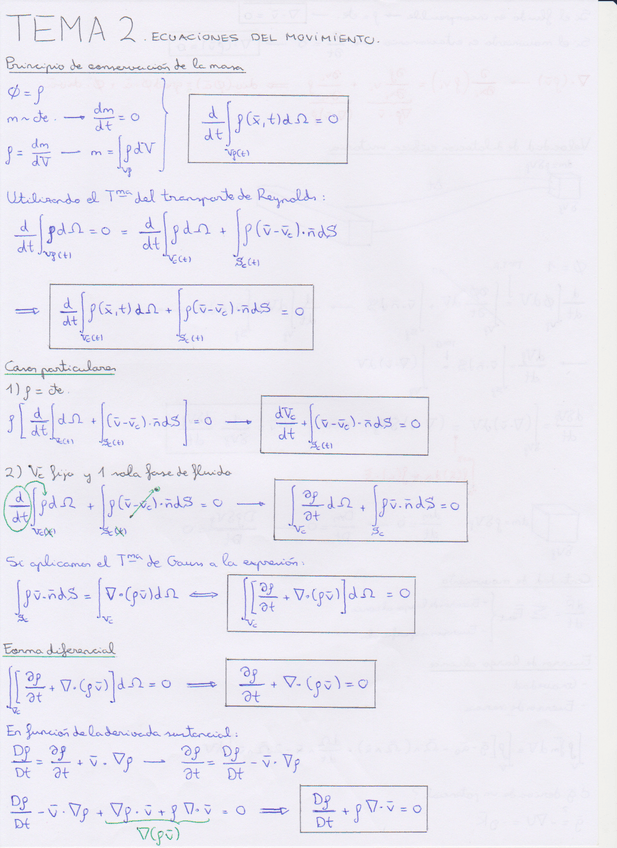 TEMA 2. ECUACIONES DEL MOVIMIENTO.
Principio de conservación de la masa
φ = ρ
m ~ cte. → dm/dt = 0
ρ = dm/dV → m = ∫_{Vf} ρdV
d/dt ∫_{Vf(t)} ρ(x̄,t)dΩ = 0
Utilizando el Tᵐᵃ del transporte de Reynolds:
d/dt ∫_{Vf(t)} ρdΩ = 0 = d/dt ∫_{Vc(t)} ρdΩ + ∫_{Sc(t)} ρ(v̄-v̄c)·n̄dS
⟹ d/dt ∫_{Vc(t)} ρ(x̄,t)dΩ + ∫_{Sc(t)} ρ(v̄-v̄c)·n̄dS = 0
Casos particulares
1) ρ = cte.
ρ[d/dt ∫_{Vc(t)} dΩ + ∫_{Sc(t)} (v̄-v̄c)·n̄dS] = 0 → dVc/dt + ∫_{Sc(t)} (v̄-v̄c)·n̄dS = 0
2) Vc fijo y 1 sola fase de fluido
d/dt ∫_{Vc(t)} ρdΩ + ∫_{Sc(t)} ρ(v̄-v̄c)·n̄dS = 0 → ∫_{Vc} ∂ρ/∂t dΩ + ∫_{Sc} ρv̄·n̄dS = 0
Si aplicamos el Tᵐᵃ de Gauss a la expresión:
∫_{Sc} ρv̄·n̄dS = ∫_{Vc} ∇·(ρv̄)dΩ ⟺ ∫_{Vc} [∂ρ/∂t + ∇·(ρv̄)]dΩ = 0
Forma diferencial
∫_{Vc} [∂ρ/∂t + ∇·(ρv̄)]dΩ = 0 ⟹ ∂ρ/∂t + ∇·(ρv̄) = 0
En función de la derivada sustancial:
Dρ/Dt = ∂ρ/∂t + v̄·∇ρ → ∂ρ/∂t = Dρ/Dt - v̄·∇ρ
Dρ/Dt - v̄·∇ρ + ∇ρ·v̄ + ρ∇·v̄ = 0 ⟹ Dρ/Dt + ρ∇·v̄ = 0
∇(ρv̄)